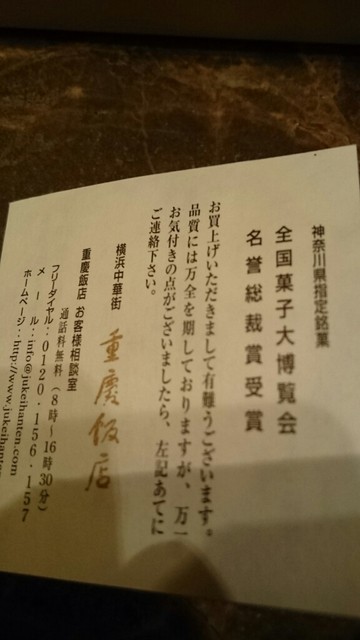 神奈川県指定銘菓
全国菓子大博覧会
名誉総裁賞受賞
お買上げいただきまして有難うございます。
品質には万全を期しておりますが、万一
お気付きの点がございましたら、左記あてに
ご連絡下さい。
横浜中華街 重慶飯店
重慶飯店 お客様相談室
通話料無料（8時～16時30分）
フリーダイヤル：0120・156・157
メール：info@jukeihanten.com
ホームページ：http://www.jukeihanten.com